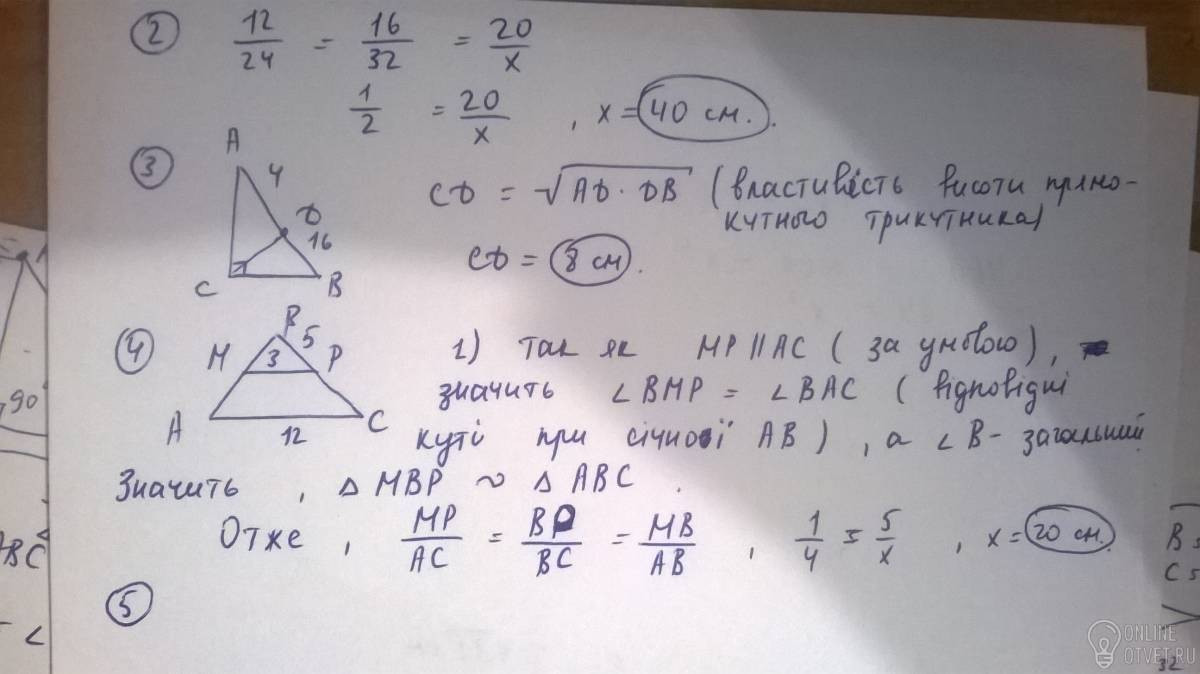 ② 12/24 = 16/32 = 20/x
1/2 = 20/x , x = 40 см.
③ A 4 D 16 C B
CD = √AD · DB (властивість висоти прямо-
кутного трикутника)
CD = 8 см.
④ B 5 M 3 P A C 12
1) так як MP || AC (за умовою),
значить ∠BMP = ∠BAC (відповідні
куті при січної AB), а ∠B - загальний.
Значить , △ MBP ~ △ ABC .
Отже , MP/AC = BP/BC = MB/AB , 1/4 = 5/x , x = 20 см.
⑤
90
ABC
∠
B =
C =
32
ONLINE
OTVET.RU